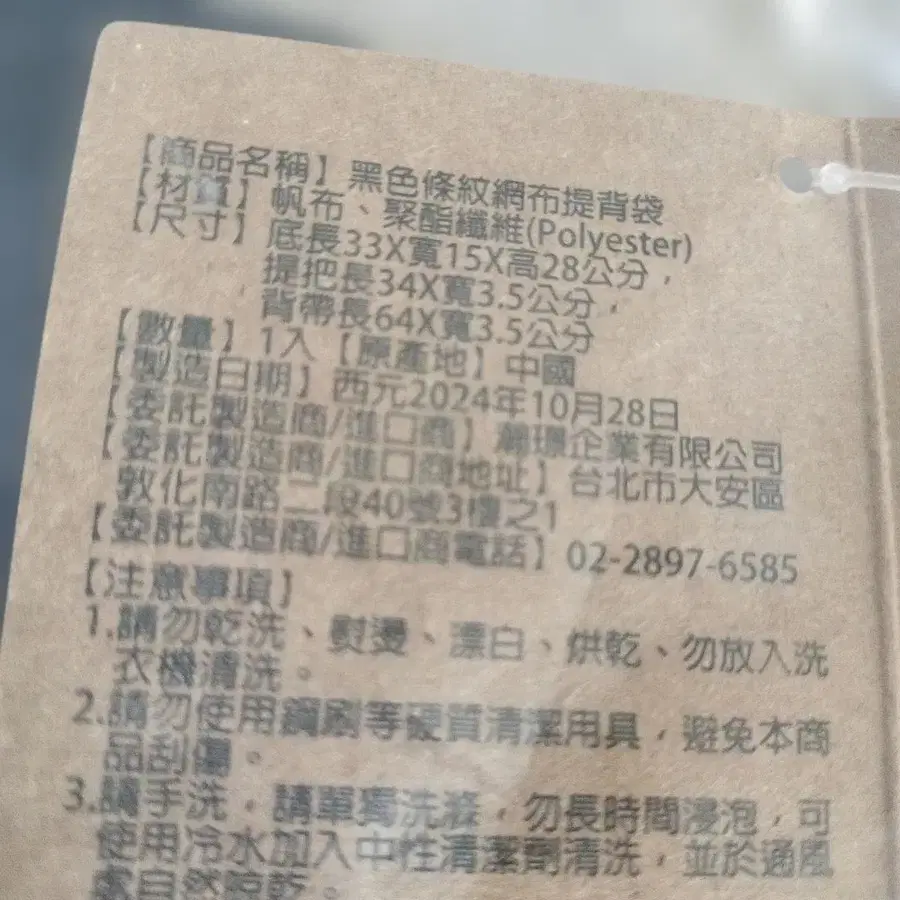 【商品名稱】黑色條紋網布提背袋
【材質】帆布、聚酯纖維(Polyester)
【尺寸】底長33X寬15X高28公分，
提把長34X寬3.5公分，
背帶長64X寬3.5公分
【數量】1入【原產地】中國
【製造日期】西元2024年10月28日
【委託製造商/進口商】瀚璟企業有限公司
【委託製造商/進口商地址】台北市大安區
敦化南路二段40號3樓之1
【委託製造商/進口商電話】02-2897-6585
【注意事項】
1.請勿乾洗、熨燙、漂白、烘乾、勿放入洗
衣機清洗。
2.請勿使用鋼刷等硬質清潔用具，避免本商
品刮傷。
3.請手洗，請單獨洗滌，勿長時間浸泡，可
使用冷水加入中性清潔劑清洗，並於通風
處自然晾乾。